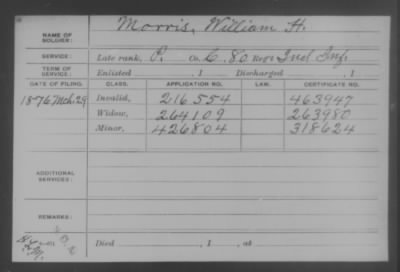 NAME OF SOLDIER: Morris, William H.
SERVICE: Late rank, P. Co. G. 80 Reg't Ind Inf.
TERM OF SERVICE: Enlisted , 1 Discharged , 1
DATE OF FILING. CLASS. APPLICATION NO. LAW. CERTIFICATE NO.
1876 Mch 29 Invalid, 216554 463947
Widow, 264109 263980
Minor, 426804 318624
ADDITIONAL SERVICES:
REMARKS:
Died , 1 , at